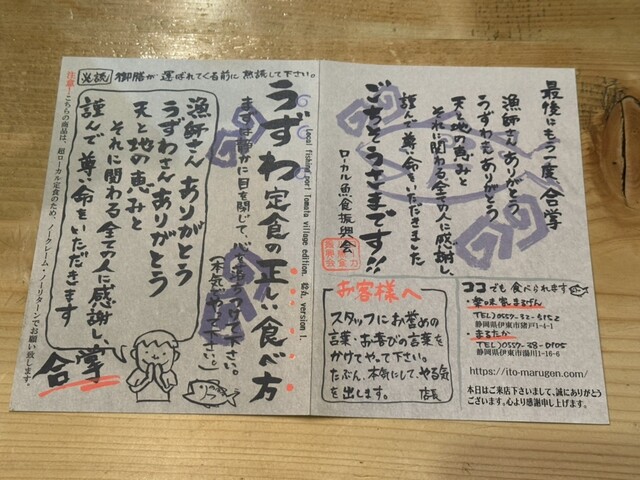 必読 御膳が運ばれてくる前に熟読して下さい。
うずわ定食の正しい食べ方
Local fishing port Tomoto village edition. version 1.
まずは静かに目を閉じて、心を落ちつけて下さい。
(本気でやって下さい。)
漁師さんありがとう
うずわさんありがとう
天と地の恵みと
それに関わる全ての人に感謝し、
謹んで尊い命をいただきます
合掌
注意!こちらの商品は、超ローカル定食のため、ノークレーム・ノーリターンでお願い致します。
最後にもう一度、合掌
漁師さんありがとう、
うずわもありがとう
天と地の恵みと
それに関わる全ての人に感謝し、
謹んで尊い命をいただきました
ごちそうさまです!!
ローカル魚食振興会
お客様へ
スタッフにお誉めの
言葉・お喜びの言葉を
かけてやって下さい。
たぶん、本気にして、やる気
を出します。 店長
ココでも食べられます
・楽味家まるげん
TEL)0557-32-5152
静岡県伊東市猪戸1-4-1
・まるたか
TEL)0557-38-0105
静岡県伊東市湯川1-16-6
https://ito-marugen.com/
本日はご来店下さいまして、誠にありがとう
ございます。心より感謝申し上げます。